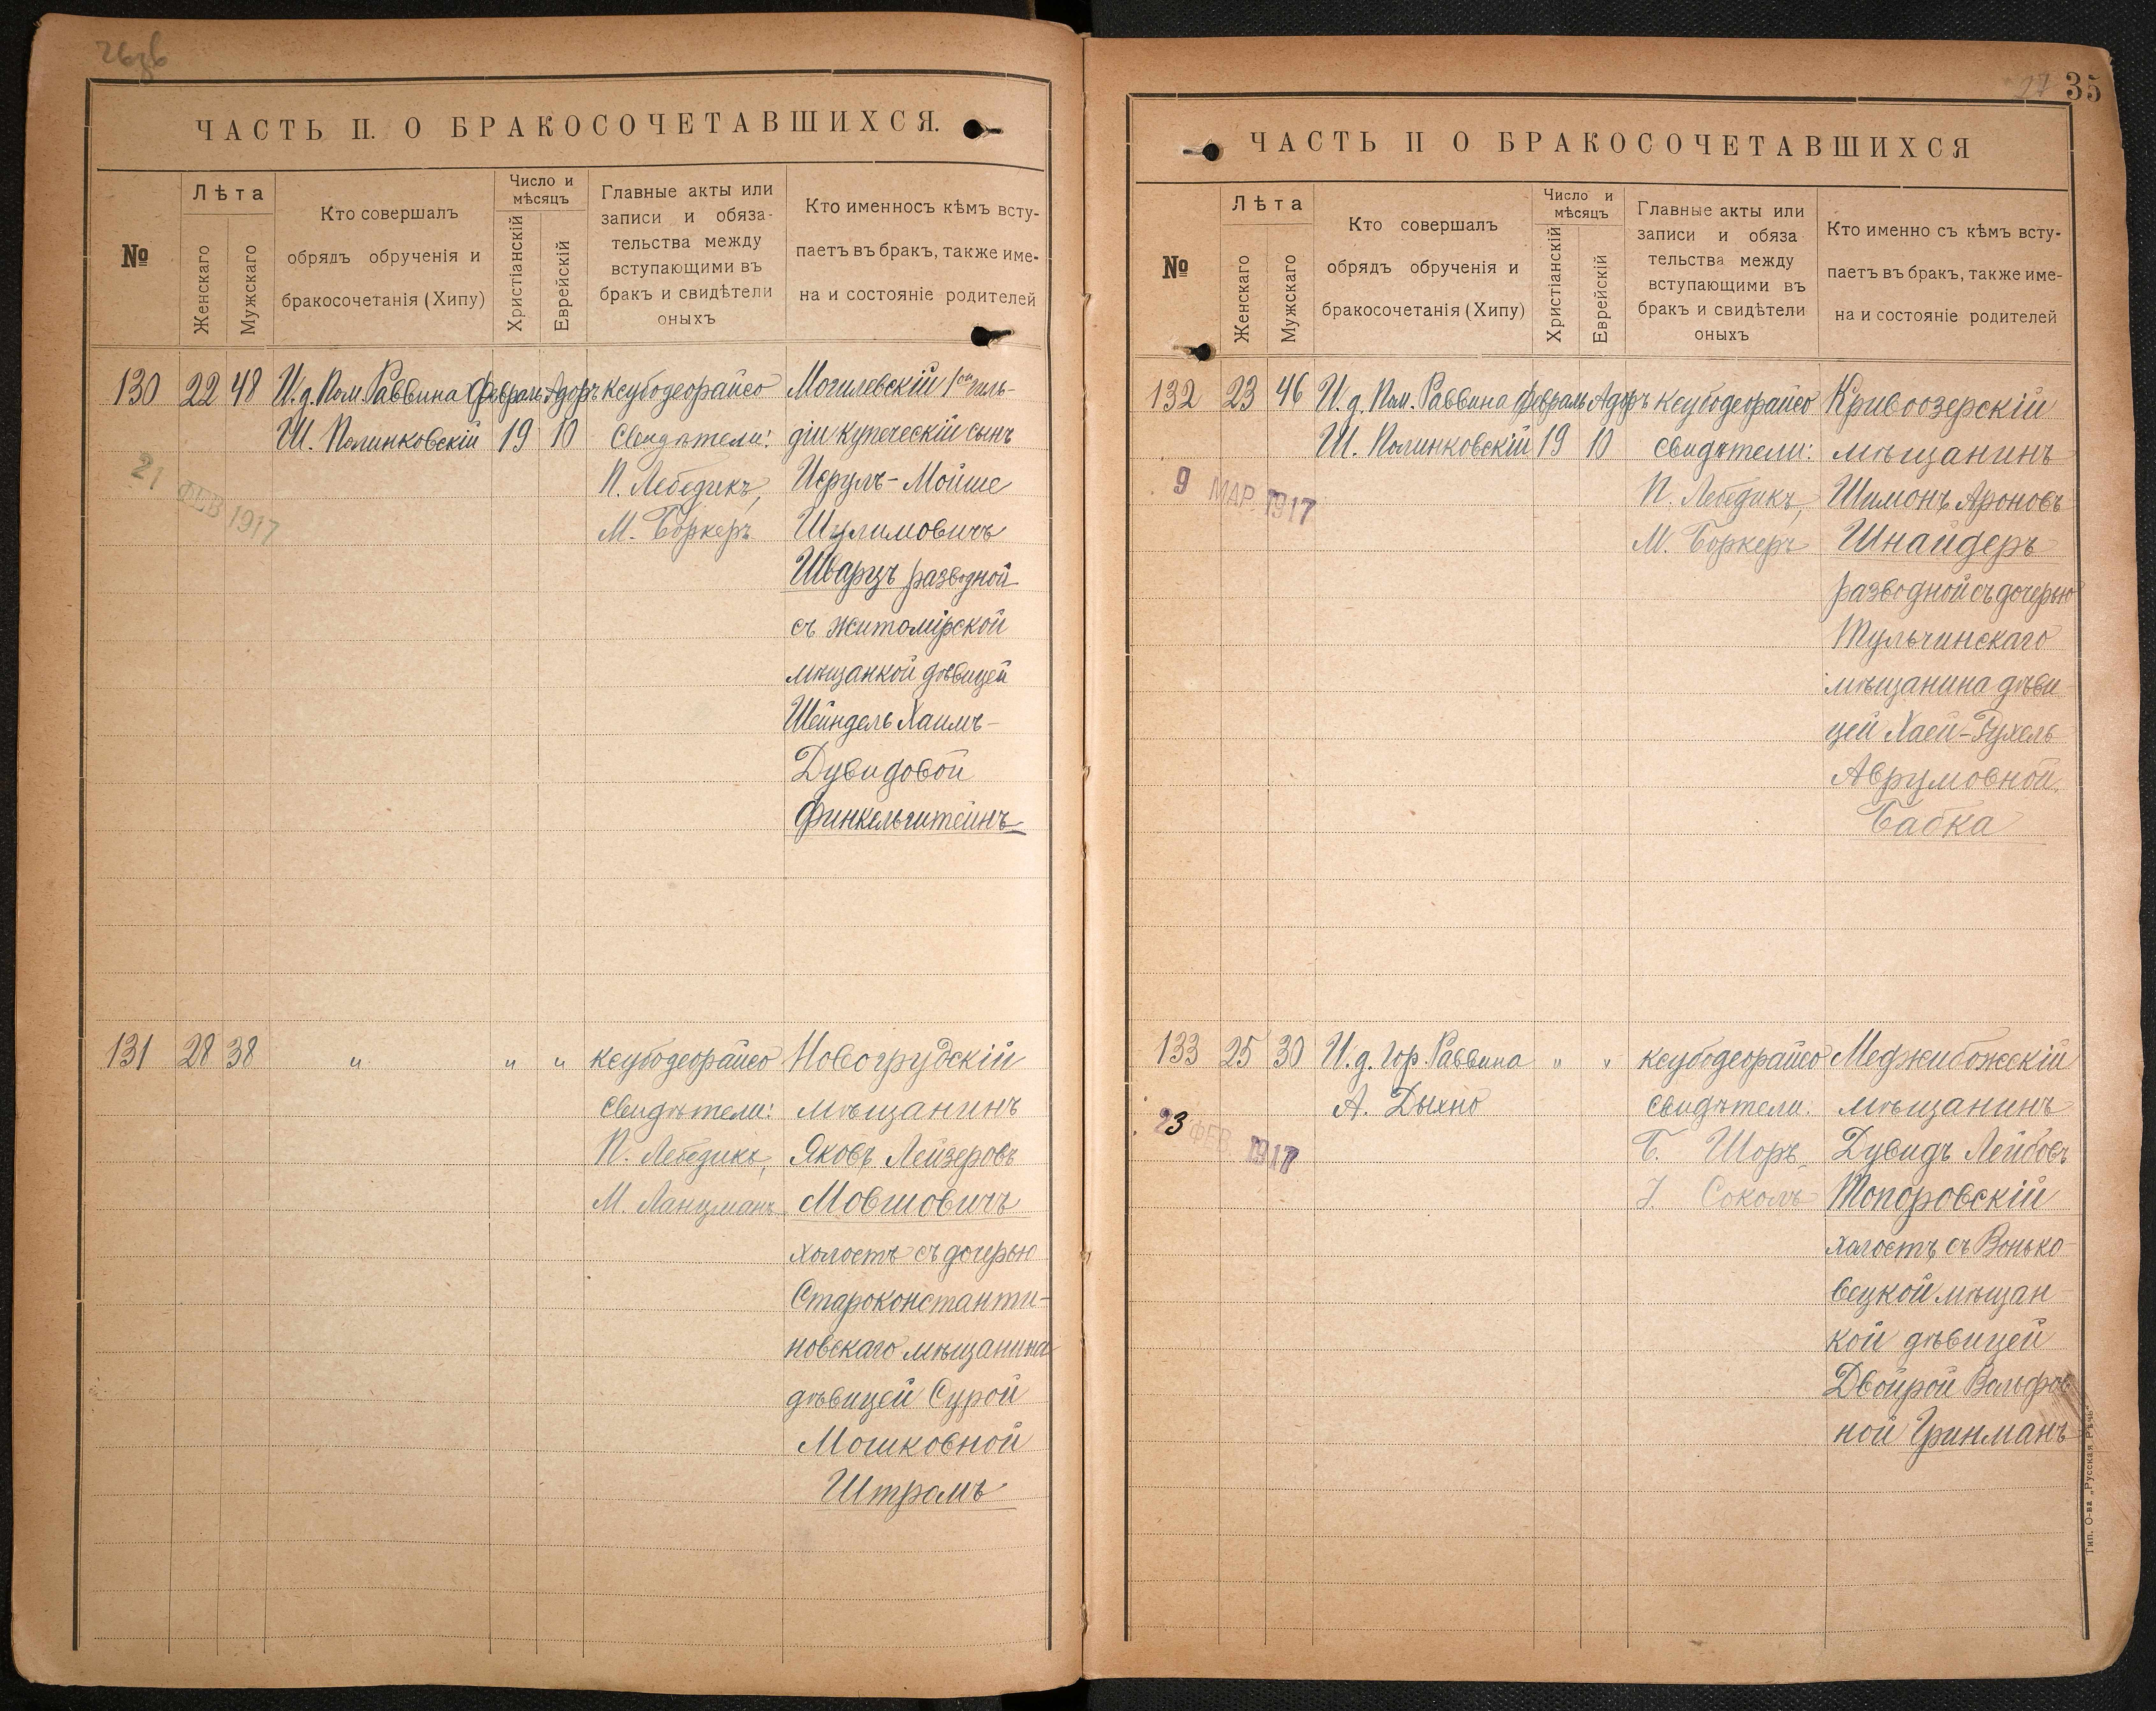 ЧАСТЬ II. О БРАКОСОЧЕТАВШИХСЯ.
№
Лѣта
Женскаго
Мужскаго
Кто совершалъ
обрядъ обрученія и
бракосочетанія (Хипу)
Число и
мѣсяцъ
Христіанскій
Еврейскій
Главные акты или
записи и обяза-
тельства между
вступающими въ
бракъ и свидѣтели
оныхъ
Кто именносъ кѣмъ всту-
паетъ въ бракъ, также име-
на и состояніе родителей
130
22
48
И. д. Пом. Раввина
Ш. Полинковскій
Февраль
19
Адоръ
10
Ксубодеорайсо
Свидѣтели:
П. Лебедикъ,
М. Боркеръ
Могилевскій 1ой гиль-
діи купеческій сынъ
Исрулъ-Мойше
Шулимовичъ
Шварцъ разводной
съ Житомірской
мѣщанкой дѣвицей
Шейндель Хаимъ-
Дувидовой
Финкельштейнъ
21 ФЕВ 1917
131
28
38
"
"
"
Ксубодеорайсо
Свидѣтели:
П. Лебедикъ,
М. Ланцманъ
Новогрудскій
мѣщанинъ
Яковъ Лейзеровъ
Мовшовичъ
холостъ съ дочерью
Староконстанти-
новскаго мѣщанина
дѣвицей Сурой
Мошковной
Штромъ
35
27
ЧАСТЬ II О БРАКОСОЧЕТАВШИХСЯ
№
Лѣта
Женскаго
Мужскаго
Кто совершалъ
обрядъ обрученія и
бракосочетанія (Хипу)
Число и
мѣсяцъ
Христіанскій
Еврейскій
Главные акты или
записи и обяза
тельства между
вступающими въ
бракъ и свидѣтели
оныхъ
Кто именно съ кѣмъ всту-
паетъ въ бракъ, также име-
на и состояніе родителей
132
23
46
И. д. Пом. Раввина
Ш. Полинковскій
Февраль
19
Адоръ
10
Ксубодеорайсо
Свидѣтели:
П. Лебедикъ,
М. Боркеръ
Кривоозерскій
мѣщанинъ
Шимонъ Ароновъ
Шнайдеръ
разводной съ дочерью
Тульчинскаго
мѣщанина дѣви
цей Хаей-Рухель
Аврумовной
Бабка
9 МАР. 1917
133
25
30
И. д. Гор. Раввина
А. Дыхно
"
"
Ксубодеорайсо
Свидѣтели:
Б. Шоръ
I. Соколъ
Меджибожскій
мѣщанинъ
Дувидъ Лейбовъ
Топоровскій
холостъ, съ Вонько-
вецкой мѣщан
кой дѣвицей
Двойрой Вольфов
ной Гринманъ
23 ФЕВ. 1917
Тип. О-ва „Русская Рѣчь“